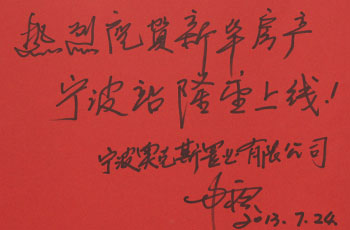 热烈庆贺新华房产
宁波站隆重上线!
宁波奥克斯置业有限公司
2013.7.24